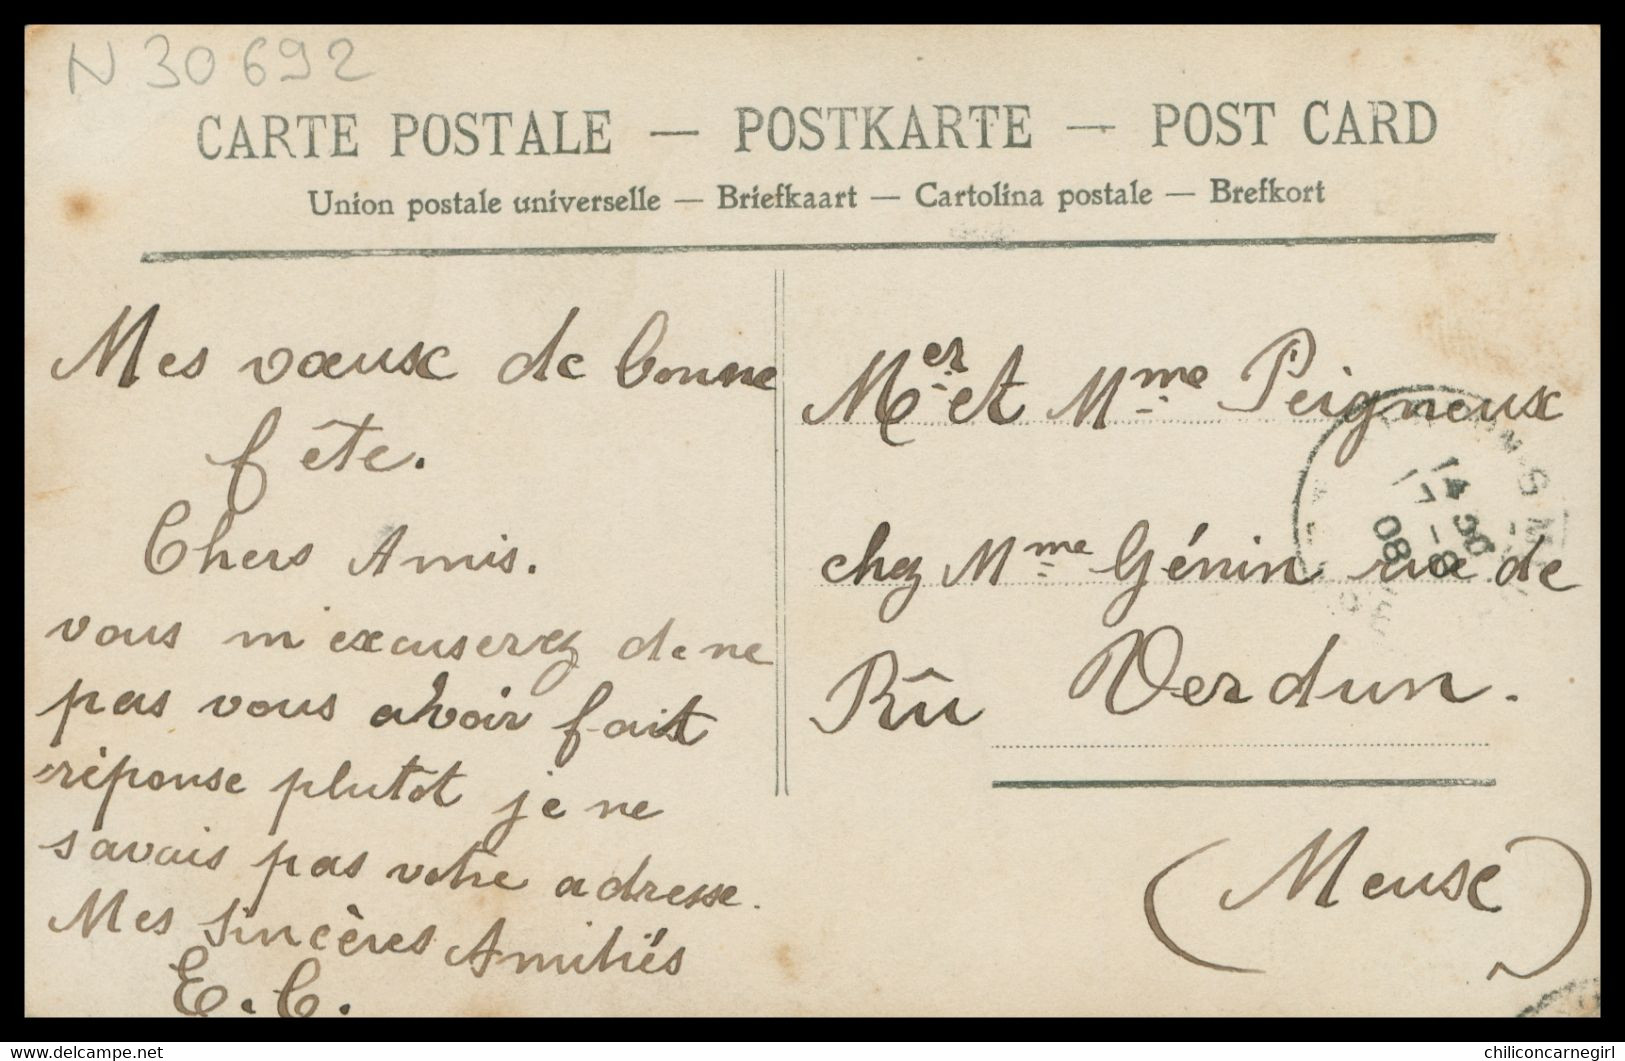 N 30692
CARTE POSTALE — POSTKARTE — POST CARD
Union postale universelle — Briefkaart — Cartolina postale — Brefkort
Mes vœux de bonne
fête.
Chers Amis.
vous m'excuserez de ne
pas vous avoir fait
réponse plutôt je ne
savais pas votre adresse.
Mes sincères Amitiés
E. C.
Mer et Mme Peigneux
chez Mme Génin rue de
Rû Verdun.
(Meuse)
14 30
17 - 8
08
www.delcampe.net
chiliconcarnegirl